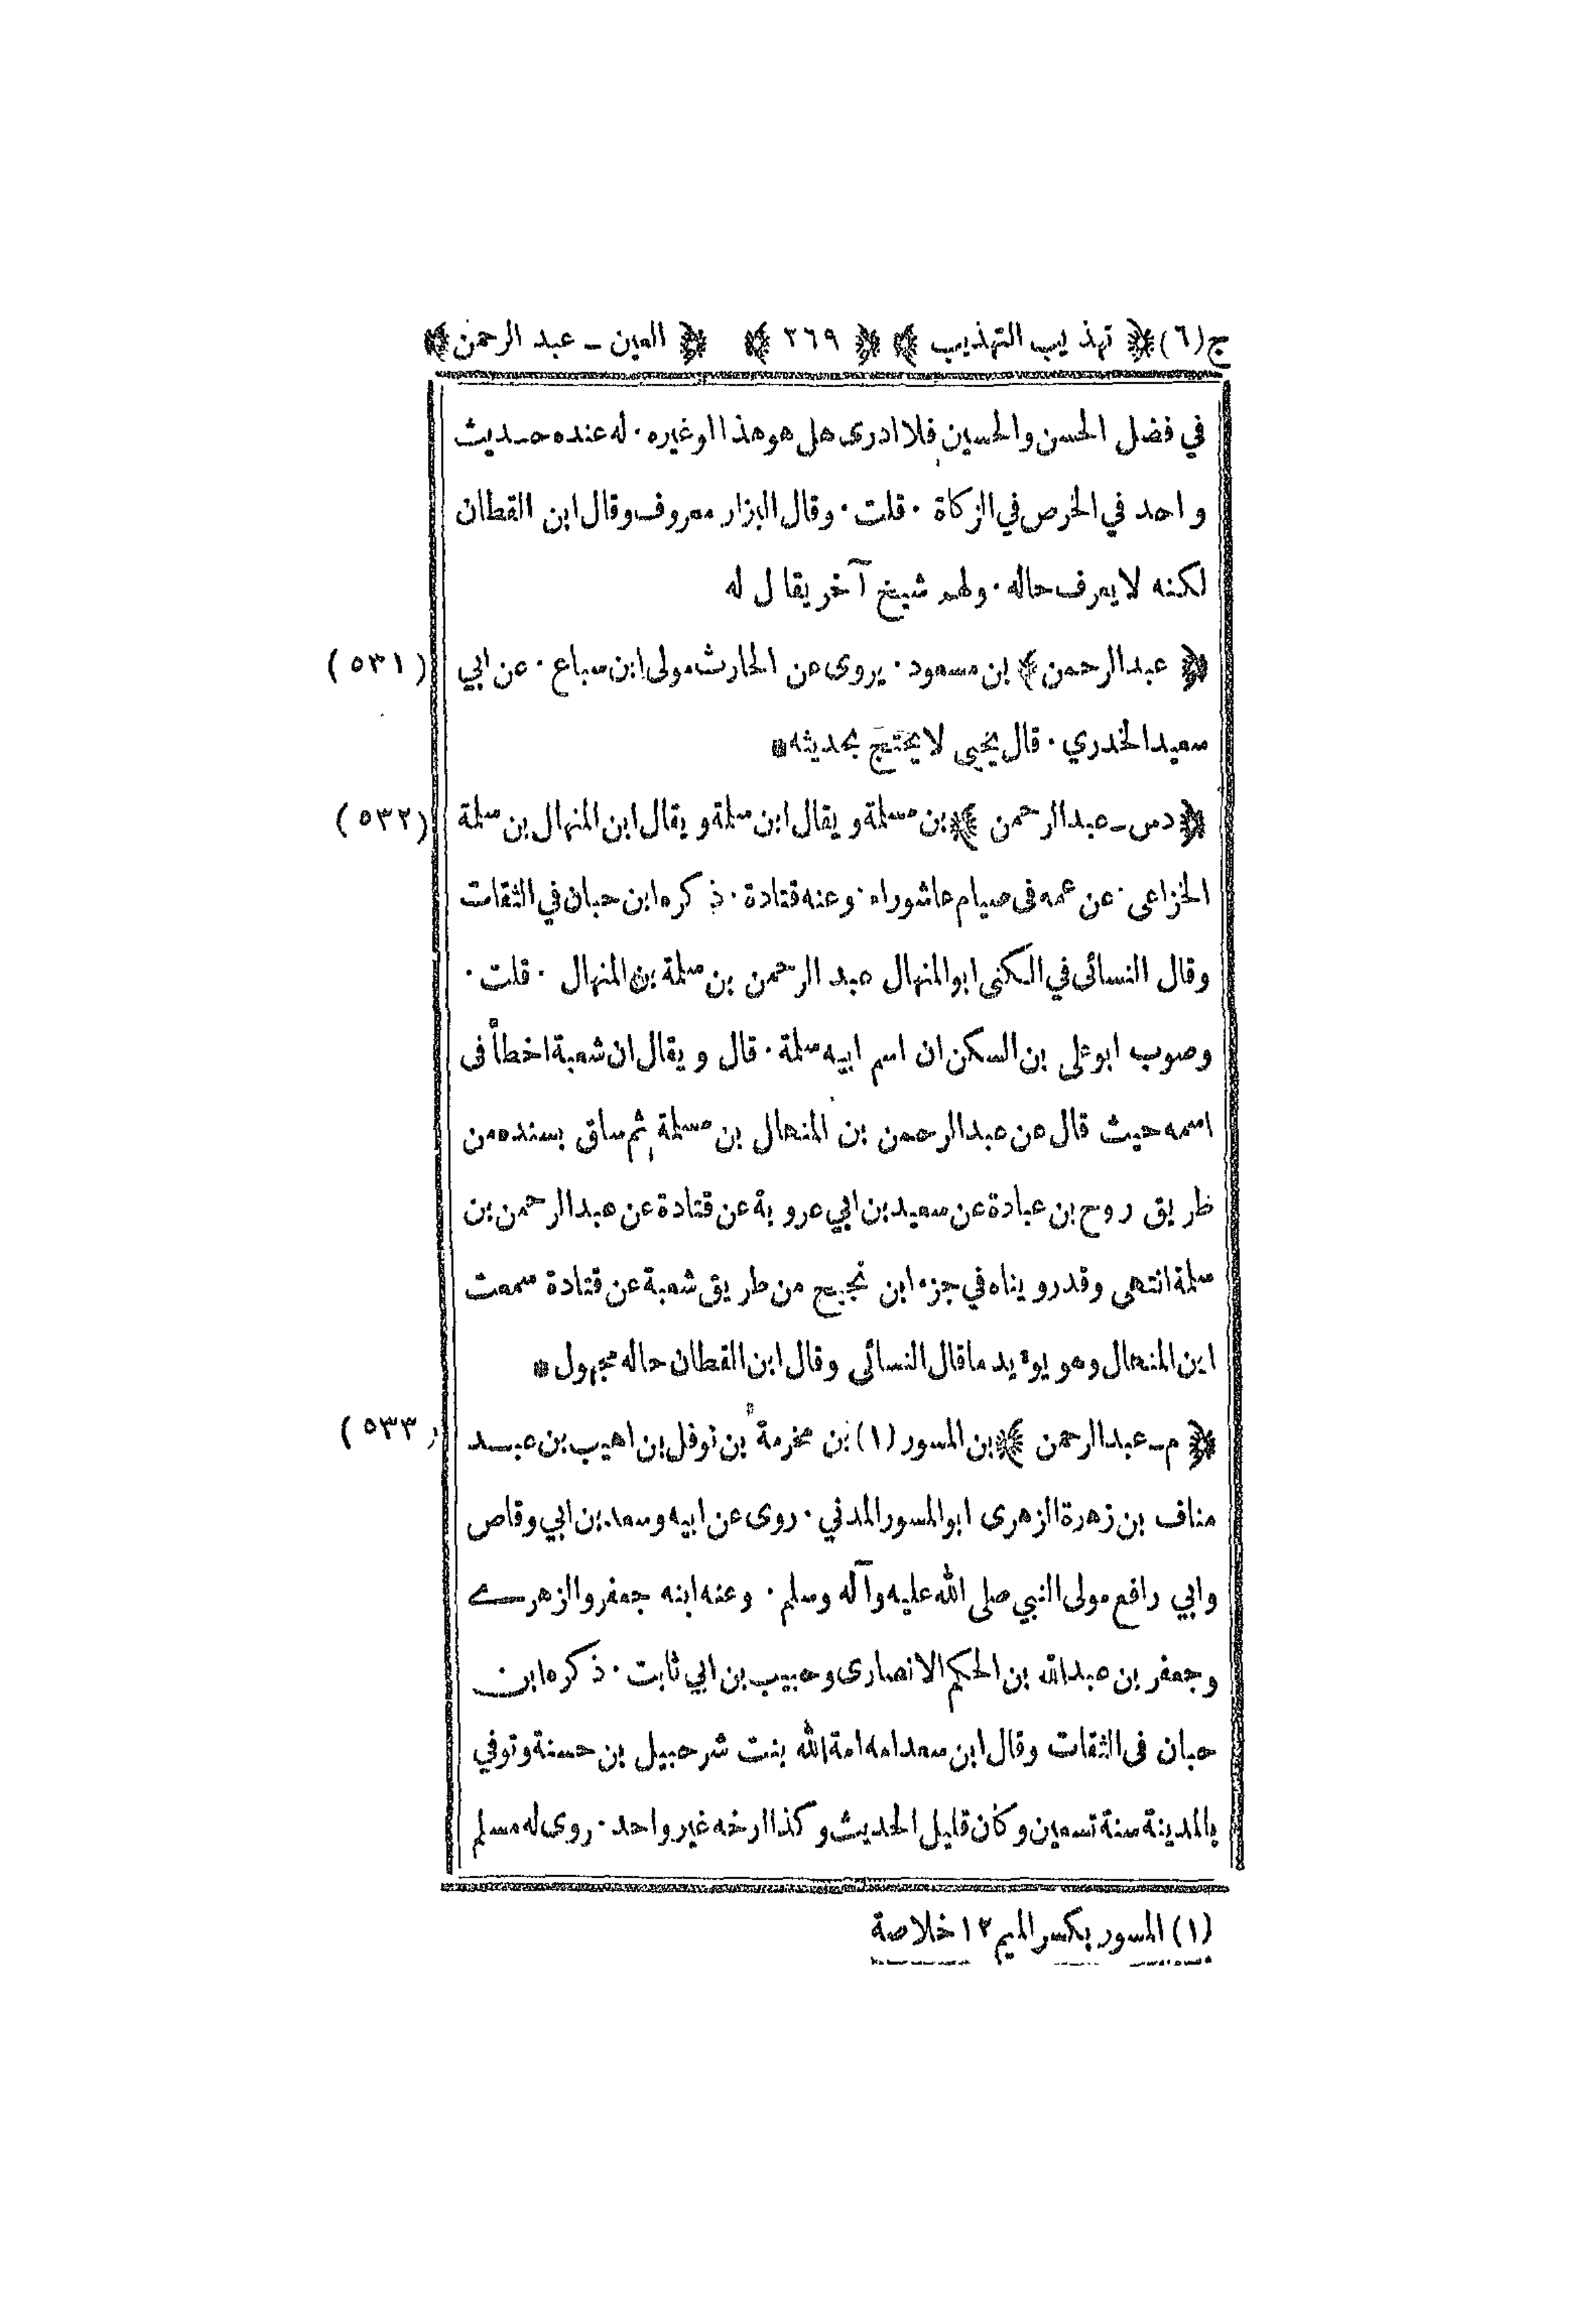 ج(٦) ﴿ تهذيب التهذيب ﴾ ﴿ ٢٦٩ ﴾ ﴿ العين ـ عبد الرحمن ﴾
في فضل الحسن والحسين فلا ادرى هل هو هذا او غيره٠ له عنده حديث
واحد في الخرص في الزكاة ٠ قلت ٠ وقال البزار معروف وقال ابن القطان
لكنه لا يعرف حاله ٠ ولهم شيخ آخر يقال له
﴿ عبدالرحمن ﴾ بن مسعود ٠ يروى عن الحارث مولى ابن سباع ٠ عن ابي (٥٣١)
سعيد الخدري ٠ قال يحيى لا يحتج بحديثه *
﴿ دس ـ عبدالرحمن ﴾ بن مسلمة ويقال ابن سلمة ويقال ابن المنهال بن سلمة (٥٣٢)
الخزاعى ٠ عن عمه فى صيام عاشوراء ٠ وعنه قتادة ٠ ذكره ابن حبان في الثقات
وقال النسائى في الكنى ابو المنهال عبد الرحمن بن سلمة بن المنهال ٠ قلت ٠
وصوب ابو على بن السكن ان اسم ابيه سلمة ٠ قال ويقال ان شعبة اخطأ فى
اسمه حيث قال عن عبدالرحمن بن المنهال بن مسلمة ثم ساق بسنده من
طريق روح بن عبادة عن سعيد بن ابي عروبة عن قتادة عن عبدالرحمن بن
سلمة انتهى وقد رويناه في جزء ابن نجيح من طريق شعبة عن قتادة سمعت
ابن المنهال وهو يؤيد ما قال النسائى وقال ابن القطان حاله مجهول *
﴿ م ـ عبدالرحمن ﴾ بن المسور (١) بن مخرمة بن نوفل بن اهيب بن عبد (٥٣٣)
مناف بن زهرة الزهرى ابو المسور المدني ٠ روى عن ابيه وسعد بن ابي وقاص
وابي رافع مولى النبي صلى الله عليه وآله وسلم ٠ وعنه ابنه جعفر والزهرى
وجعفر بن عبدالله بن الحكم الانصارى وحبيب بن ابي ثابت ٠ ذكره ابن
حبان فى الثقات وقال ابن سعد امه امة الله بنت شرحبيل بن حسنة وتوفي
بالمدينة سنة تسعين وكان قليل الحديث وكذا ارخه غير واحد ٠ روى له مسلم
(١) المسور بكسر الميم ١٢ خلاصة